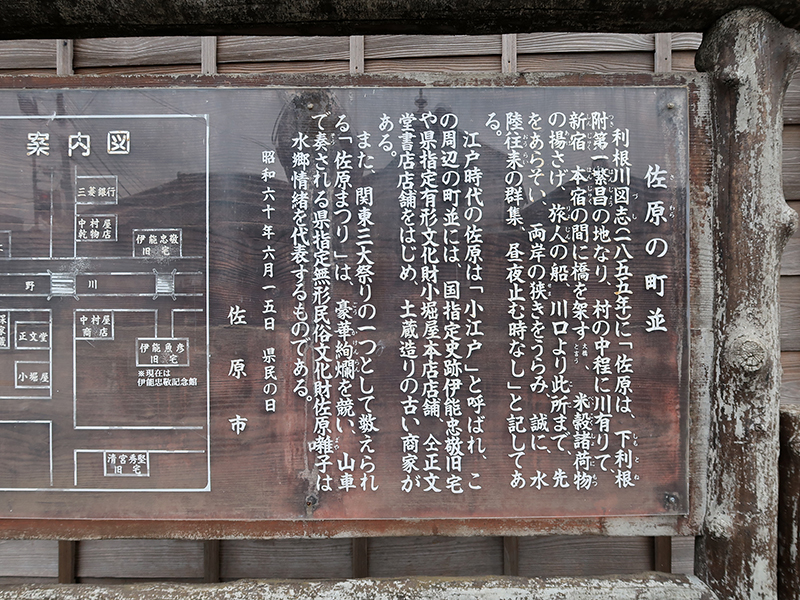 佐原の町並
さわら
利根川図志(一八五五年)に「佐原は、下利根
附第一繁昌の地なり、村の中程に川有りて、
新宿 本宿の間に橋を架す 大橋と言う 米穀諸荷物
の揚さげ、旅人の船、川口より此所まで、先
をあらそい、両岸の狭きをうらみ、誠に、水
陸往来の群集、昼夜止む時なし」と記してあ
る。
江戸時代の佐原は「小江戸」と呼ばれ、こ
の周辺の町並には、国指定史跡伊能忠敬旧宅
や県指定有形文化財小堀屋本店店舗、仝正文
堂書店店舗をはじめ、土蔵造りの古い商家が
ある。
また、関東三大祭りの一つとして数えられ
る「佐原まつり」は、豪華絢爛を競い、山車
で奏される県指定無形民俗文化財佐原囃子は
水郷情緒を代表するものである。
昭和六十年六月一五日 県民の日
佐原市
案内図
三菱銀行
中村屋
乾物店
伊能忠敬
旧宅
野川
中村屋
商店
伊能魚彦
旧宅
※現在は
伊能忠敬記念館
正文堂
小堀屋
清宮秀堅
旧宅